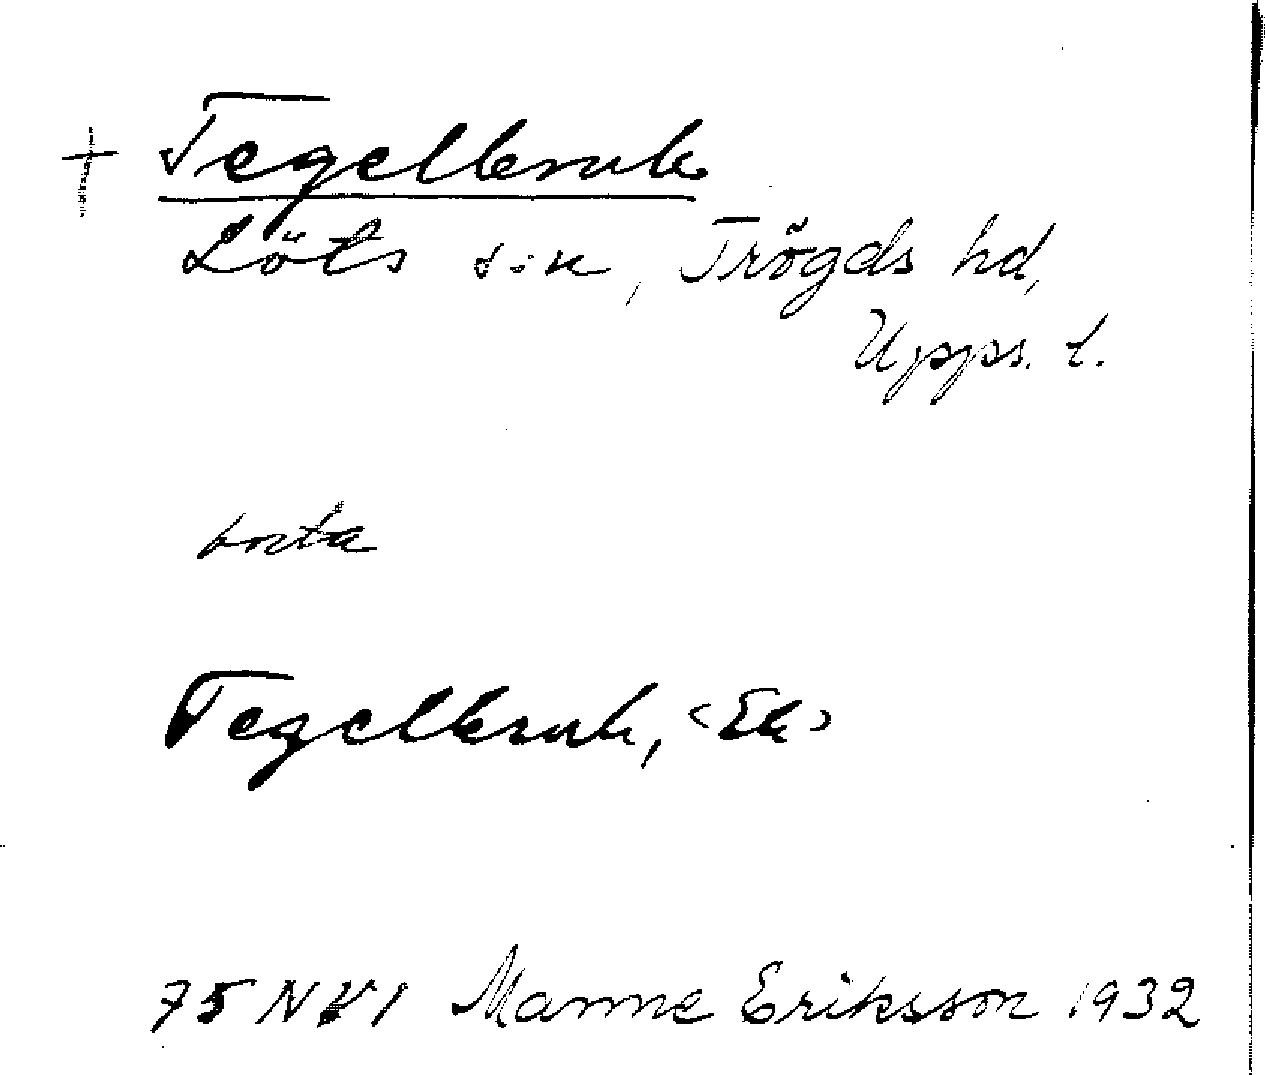 + Tegelbruk
Löts s:n, Trögds hd,
Upps. l.
borta
Tegelbruk, <Ek>
75 NV 1 Manne Eriksson 1932